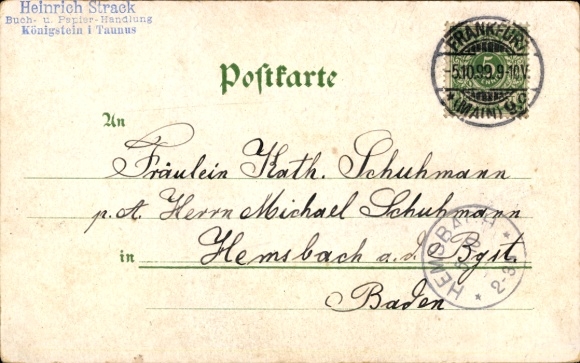 Heinrich Strack
Buch- u. Papier-Handlung
Königstein i Taunus
FRANKFURT
5.10.99.9-10V.
(MAIN) 9.
5
Postkarte
An
Fräulein Kath. Schuhmann
p. A. Herrn Michael Schuhmann
in Hemsbach a. d. Bgst.
Baden
HEMSBACH
2-3